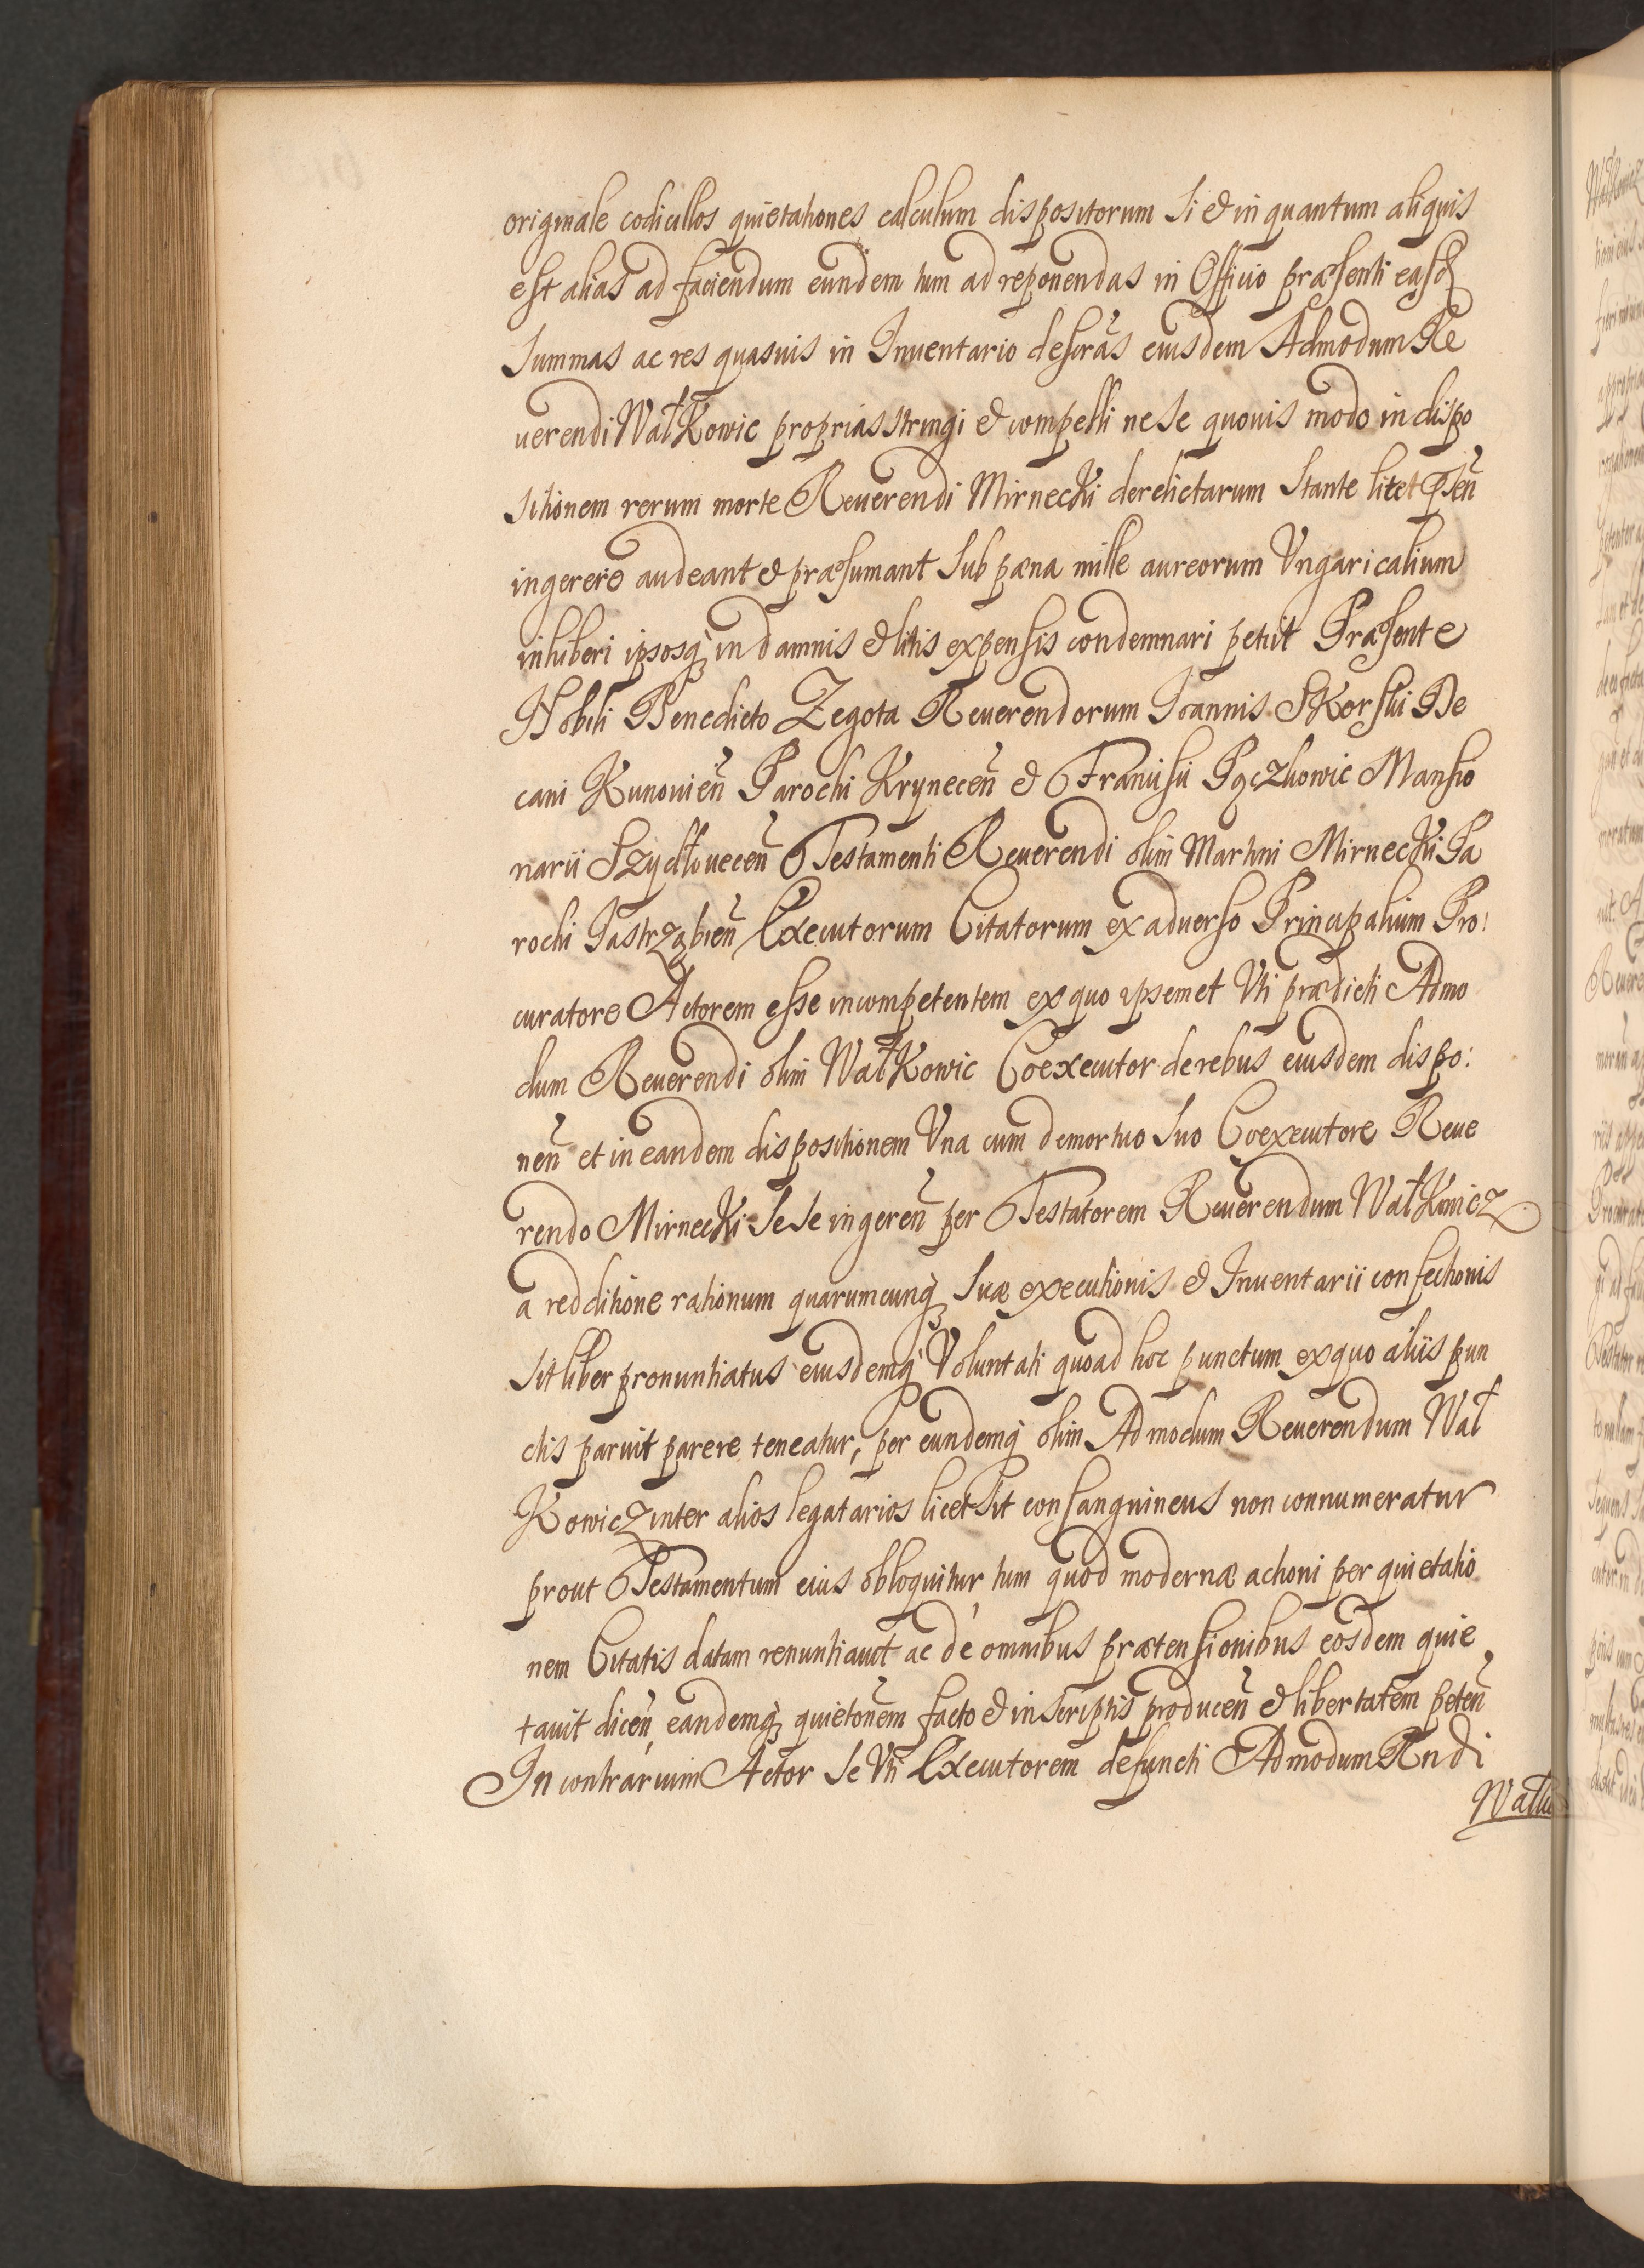 originale codicillos quietationes calculum dispositorum si & in quantum aliquis
est alias ad faciendum eundem tum ad reponendas in Officio præsenti easdẽ
summas ac res quasuis in Inuentario descrãs eiusdem Admodum Re
uerendi Wałkowic proprias stringi & compelli ne se quouis modo in dispo
sitionem rerum morte Reuerendi Mirnecki derelictarum stante lite
ingerere audeant & præsumant sub pæna mille aureorum Vngaricalium
inhiberi ipsosq́ in damnis & litis expensis condemnari petiit Præsente
Nobili Benedicto Zegota Reuerendorum Ioannis Skorski De
cani Kunouieñ Parochi Kryneceñ & Francisci Pączkowic Mansio
narii Szydłoueceñ Testamenti Reuerendi olim Martini Mirnecki Pa
rochi Jastrząbieñ Executorum Citatorum ex aduerso Principalium Pro:
curatore Actorem esse incompetentem ex quo ipsemet Vti prædicti Admo
dum Reuerendi olim Wałkowic Coexecutor de rebus eiusdem dispo:
neñ et in eandem dispositionem Vna cum demortuo suo Coexecutore Reue
rendo Mirnecki sese ingereñ per Testatorem Reuerendum Wałkowicz
a redditione rationum quarumcunq́ suæ executionis & Inuentarii confectionis
sit liber pronuntiatus eiusdemq́ Voluntati quoad hoc punctum ex quo aliis pun
ctis paruit parere teneatur, per eundemq́ olim Admodum Reuerendum Wał
Kowicz inter alios legatarios licet sit consanguineus non connumeratur
prout Testamentum eius obloquitur, tum quod modernæ actioni per quietatio
nem Citatis datam renuntiauit ac de omnibus prætensionibus eosdem quie
tauit diceñ, eandemq́ quietoñem facto & in scriptis produceñ & libertatem peteñ
In contrarium Actor se Vti Executorem defuncti Admodum Rndi